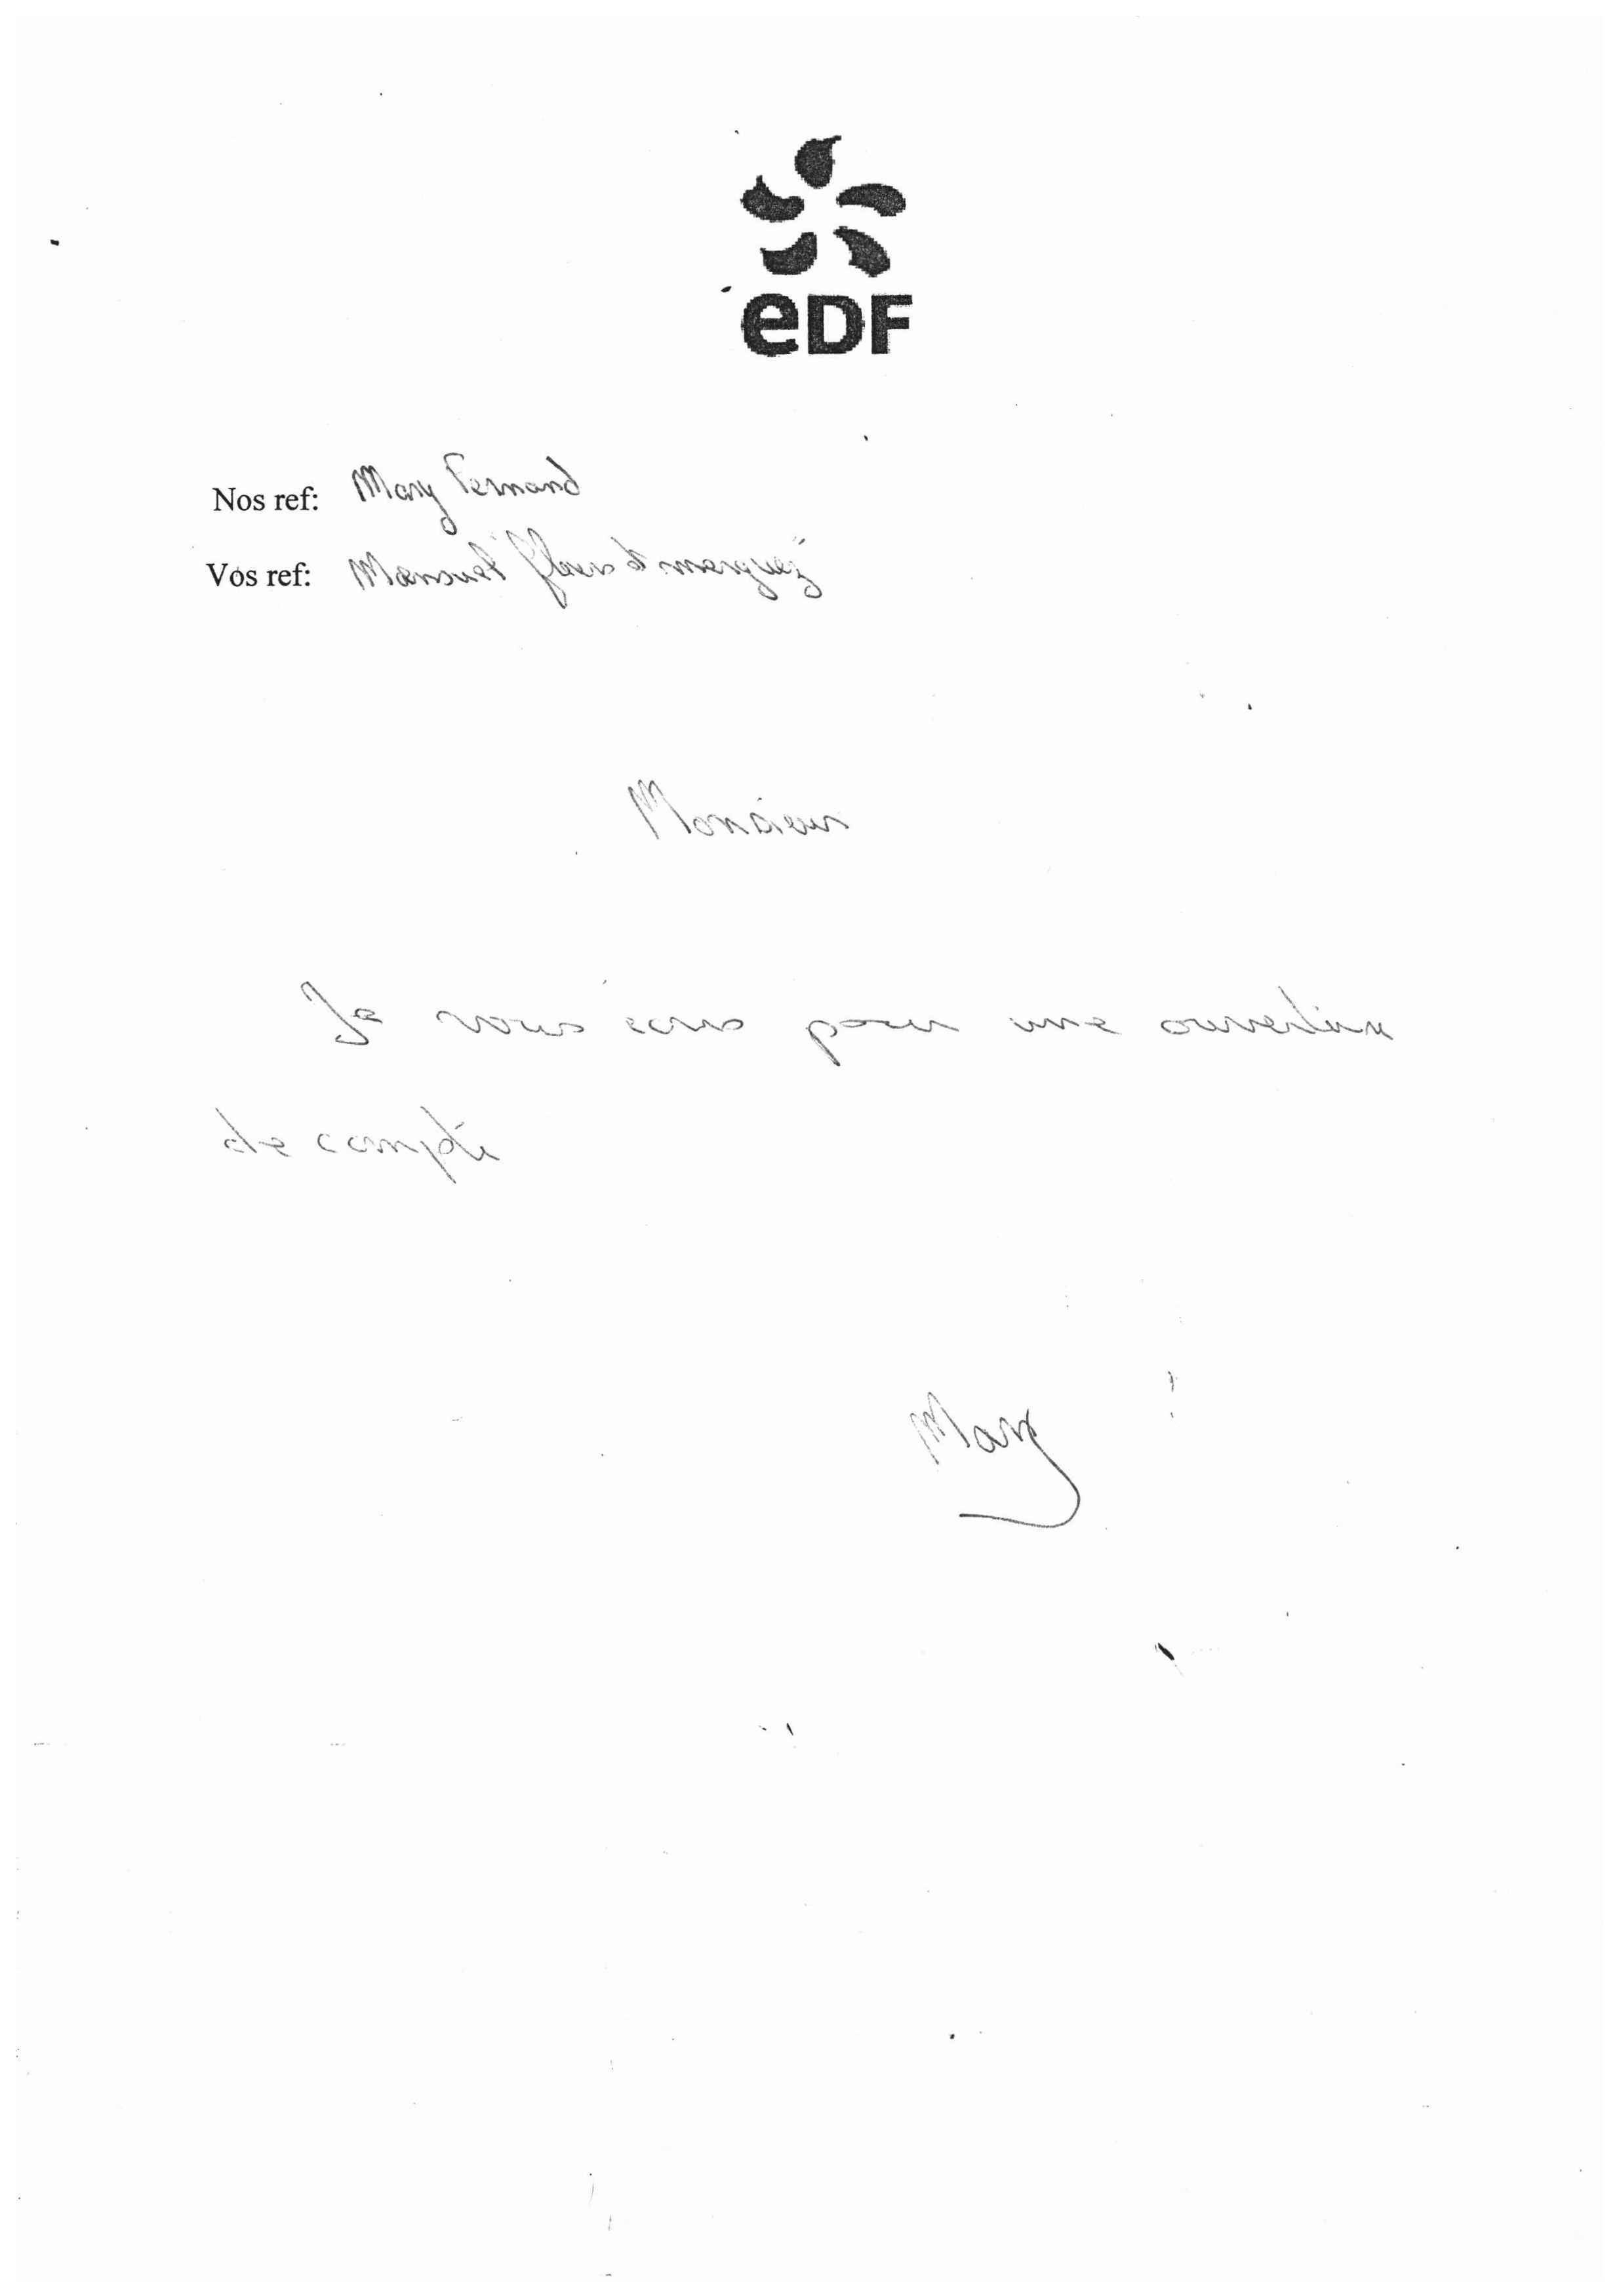 eDF
Nos ref: Mary Fernand
Vos ref: Mansuet
Monsieur
Je vous écris pour une ouverture
de compte
Mary